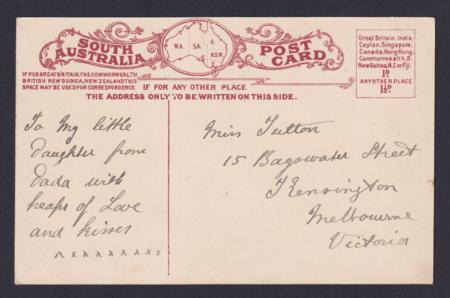 SOUTH AUSTRALIA
W.A. S.A. Q. N.S.W.
POST CARD
Great Britain, India,
Ceylon, Singapore,
Canada, Hong Kong,
Commonwealth, B.
New Guinea, N.Z. or Fiji.
1D
ANY OTHER PLACE
1½D
IF FOR GREAT BRITAIN, THE COMMONWEALTH,
BRITISH NEW GUINEA, NEW ZEALAND THIS
SPACE MAY BE USED FOR CORRESPONDENCE
IF FOR ANY OTHER PLACE
THE ADDRESS ONLY TO BE WRITTEN ON THIS SIDE.
To My little
daughter from
Dada with
heaps of Love
and kisses
x x x x x x x x x
Miss Tutton
15 Bagswater Street
Kensington
Melbourne
Victoria